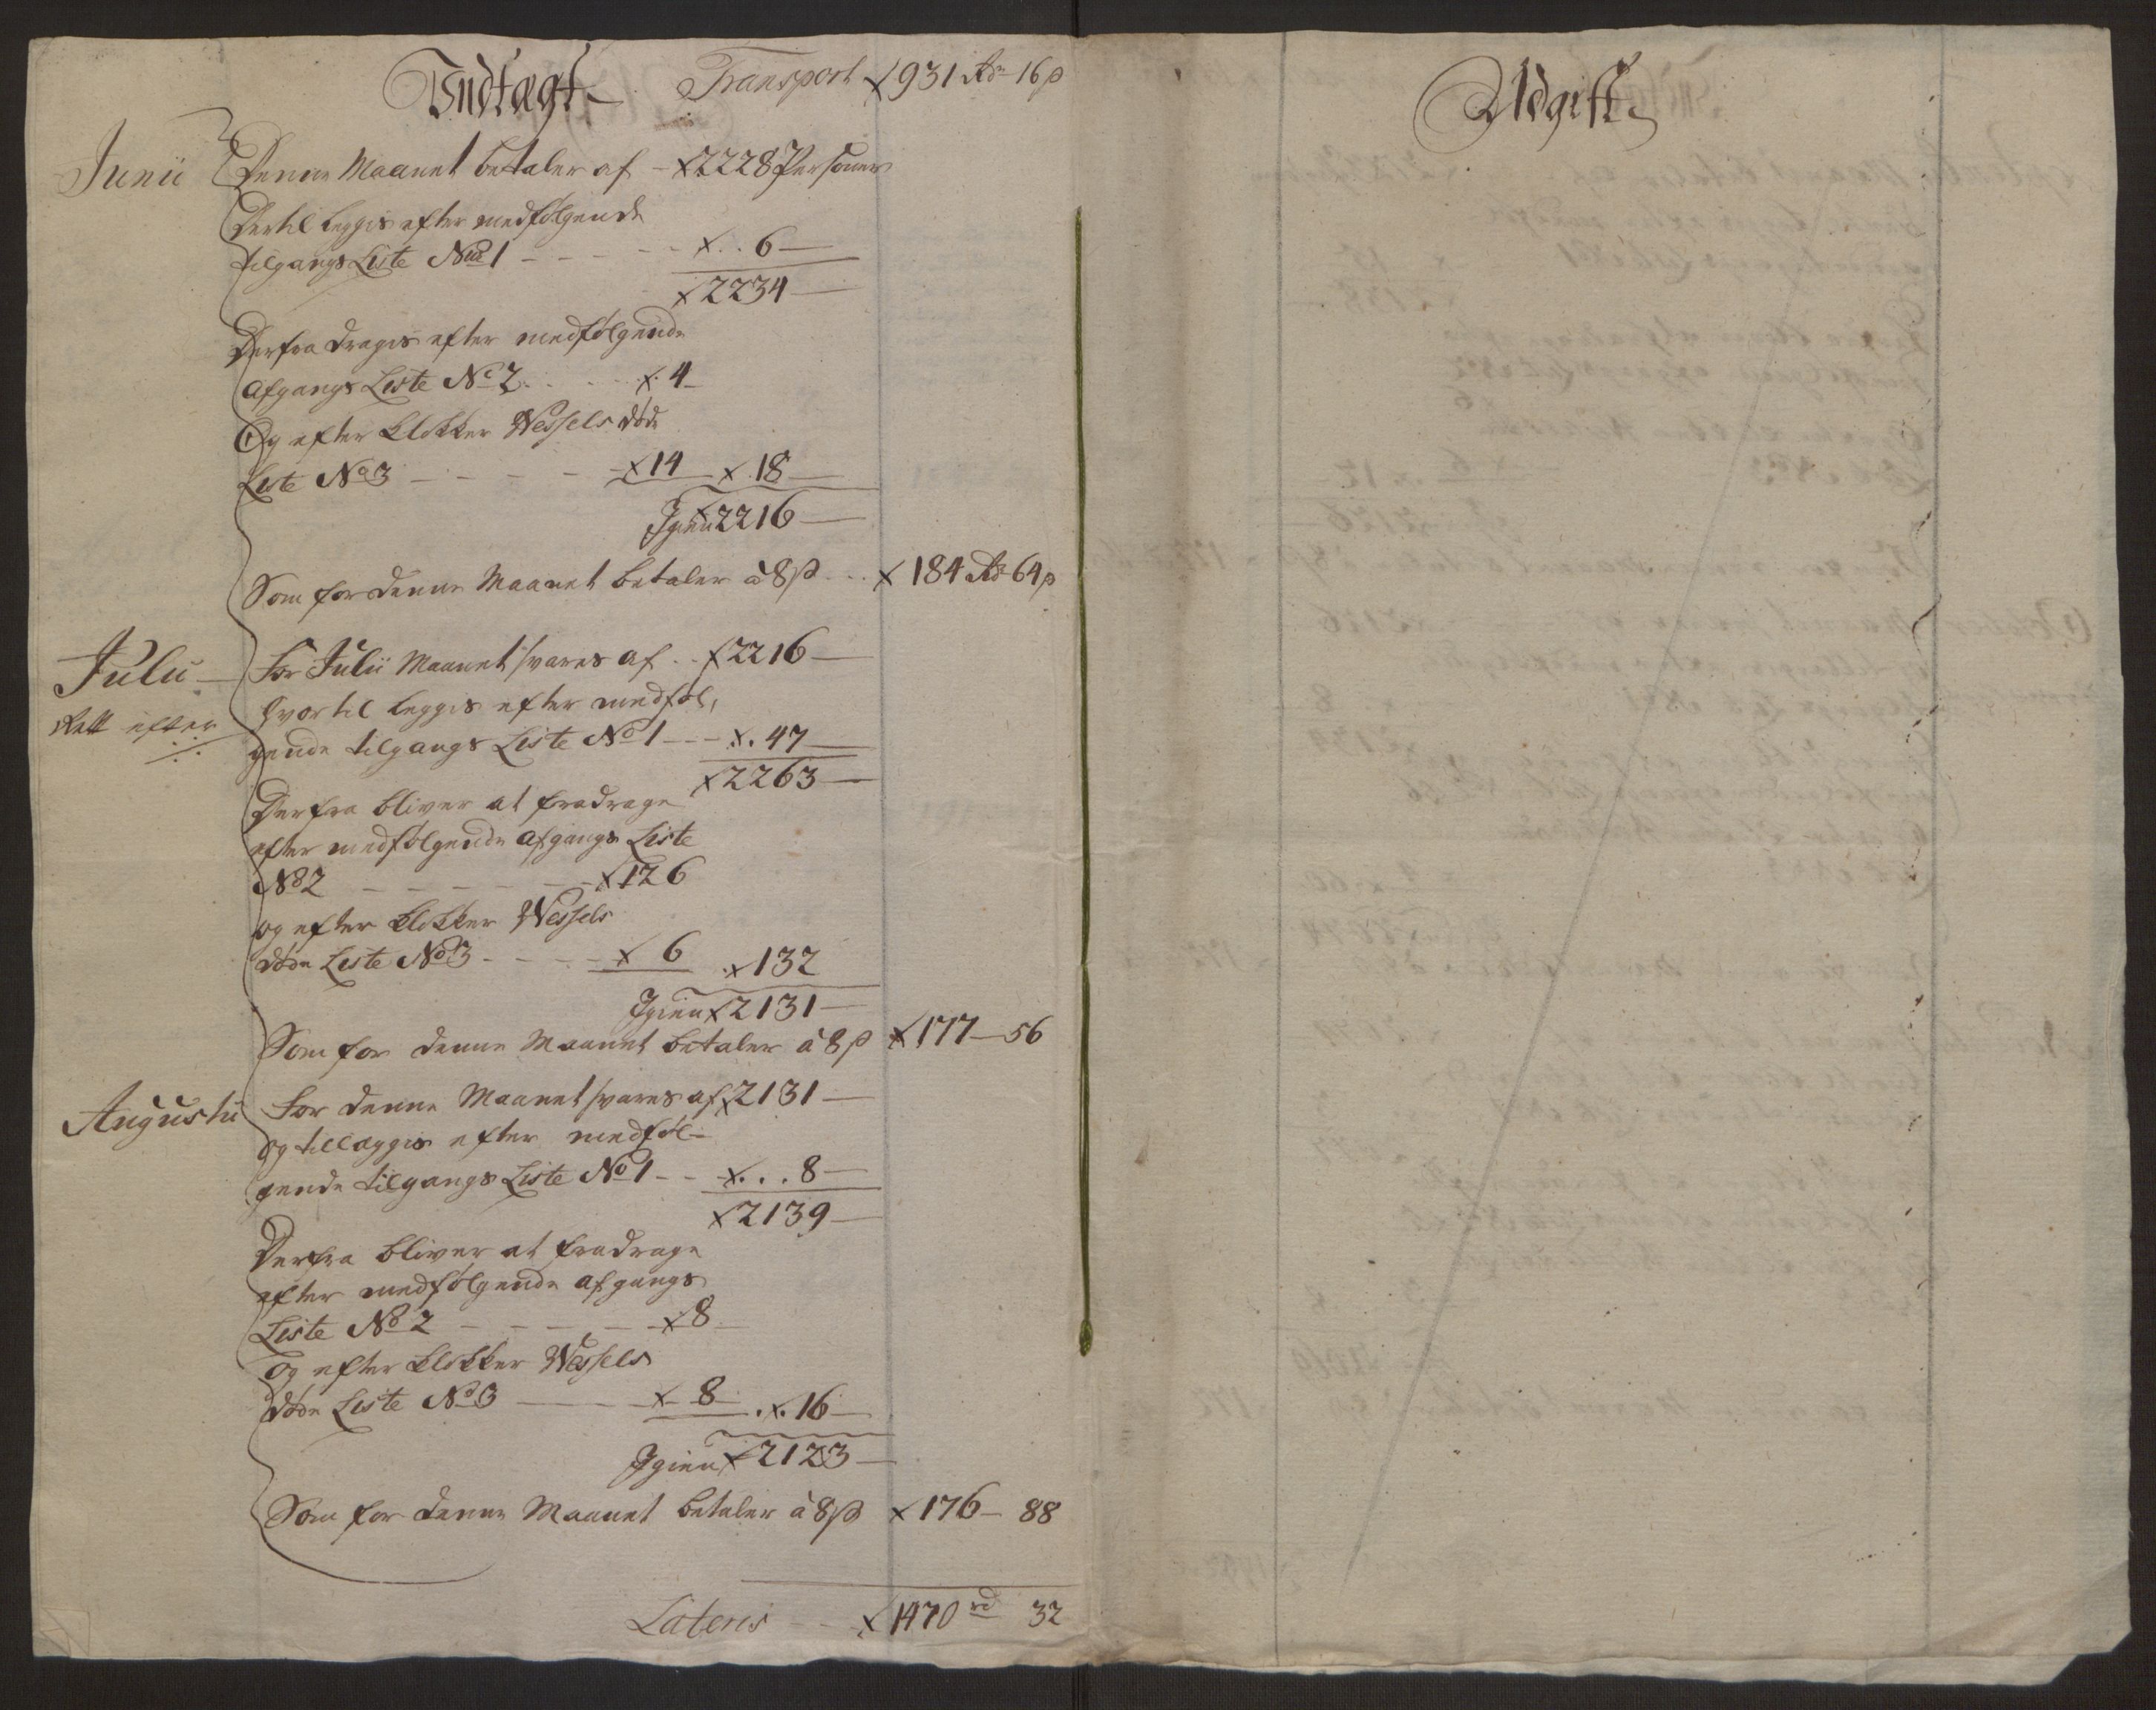 Indtægt Transport x 931 Rdr 16 s
Junii Denne Maanet betaler af - x 2228 Personer
Dertil leggis efter medfølgende
tilgangs Liste No 1 - - - x . . 6 —
x 2234 —
Derfra dragis efter medfølgende
Afgangs Liste No 2 . . . . x . 4 —
Og efter Klokker Wessels døde
Liste No 3 - - - - x 14 x . 18 —
Igien x 2216 —
Som for denne Maanet betaler à 8 s . . . x 184 Rdr 64 s
Julii — For Julii Maanet svares af . . x 2216 —
hvortil leggis efter medføl,
Rett efter
gende tilgangs Liste No 1 - - - x . 47 —
x 2263 —
Derfra bliver at fradrage
efter medfølgende Afgangs Liste
No 2 - - - - - - x 126
og efter Klokker Wessels
døde Liste No 3 - - - - x 6 . x 132
Igien x 2131 —
Som for denne Maanet betaler à 8 s x 177 — 56
Augustii For denne Maanet svares af x 2131 —
og tillæggis efter medføl-
gende tilgangs Liste No 1 - - x . . . 8 —
x 2139 —
Derfra bliver at fradrage
efter medfølgende afgangs
Liste No 2 - - - - - x 8 —
og efter Klokker Wessels
døde Liste No 3 — — x 8 — . x . 16 —
Igien x 2123 —
Som for denne Maanet betaler à 8 s x 176 — 88
Lateris - - - x 1470 rd 32
Udgift